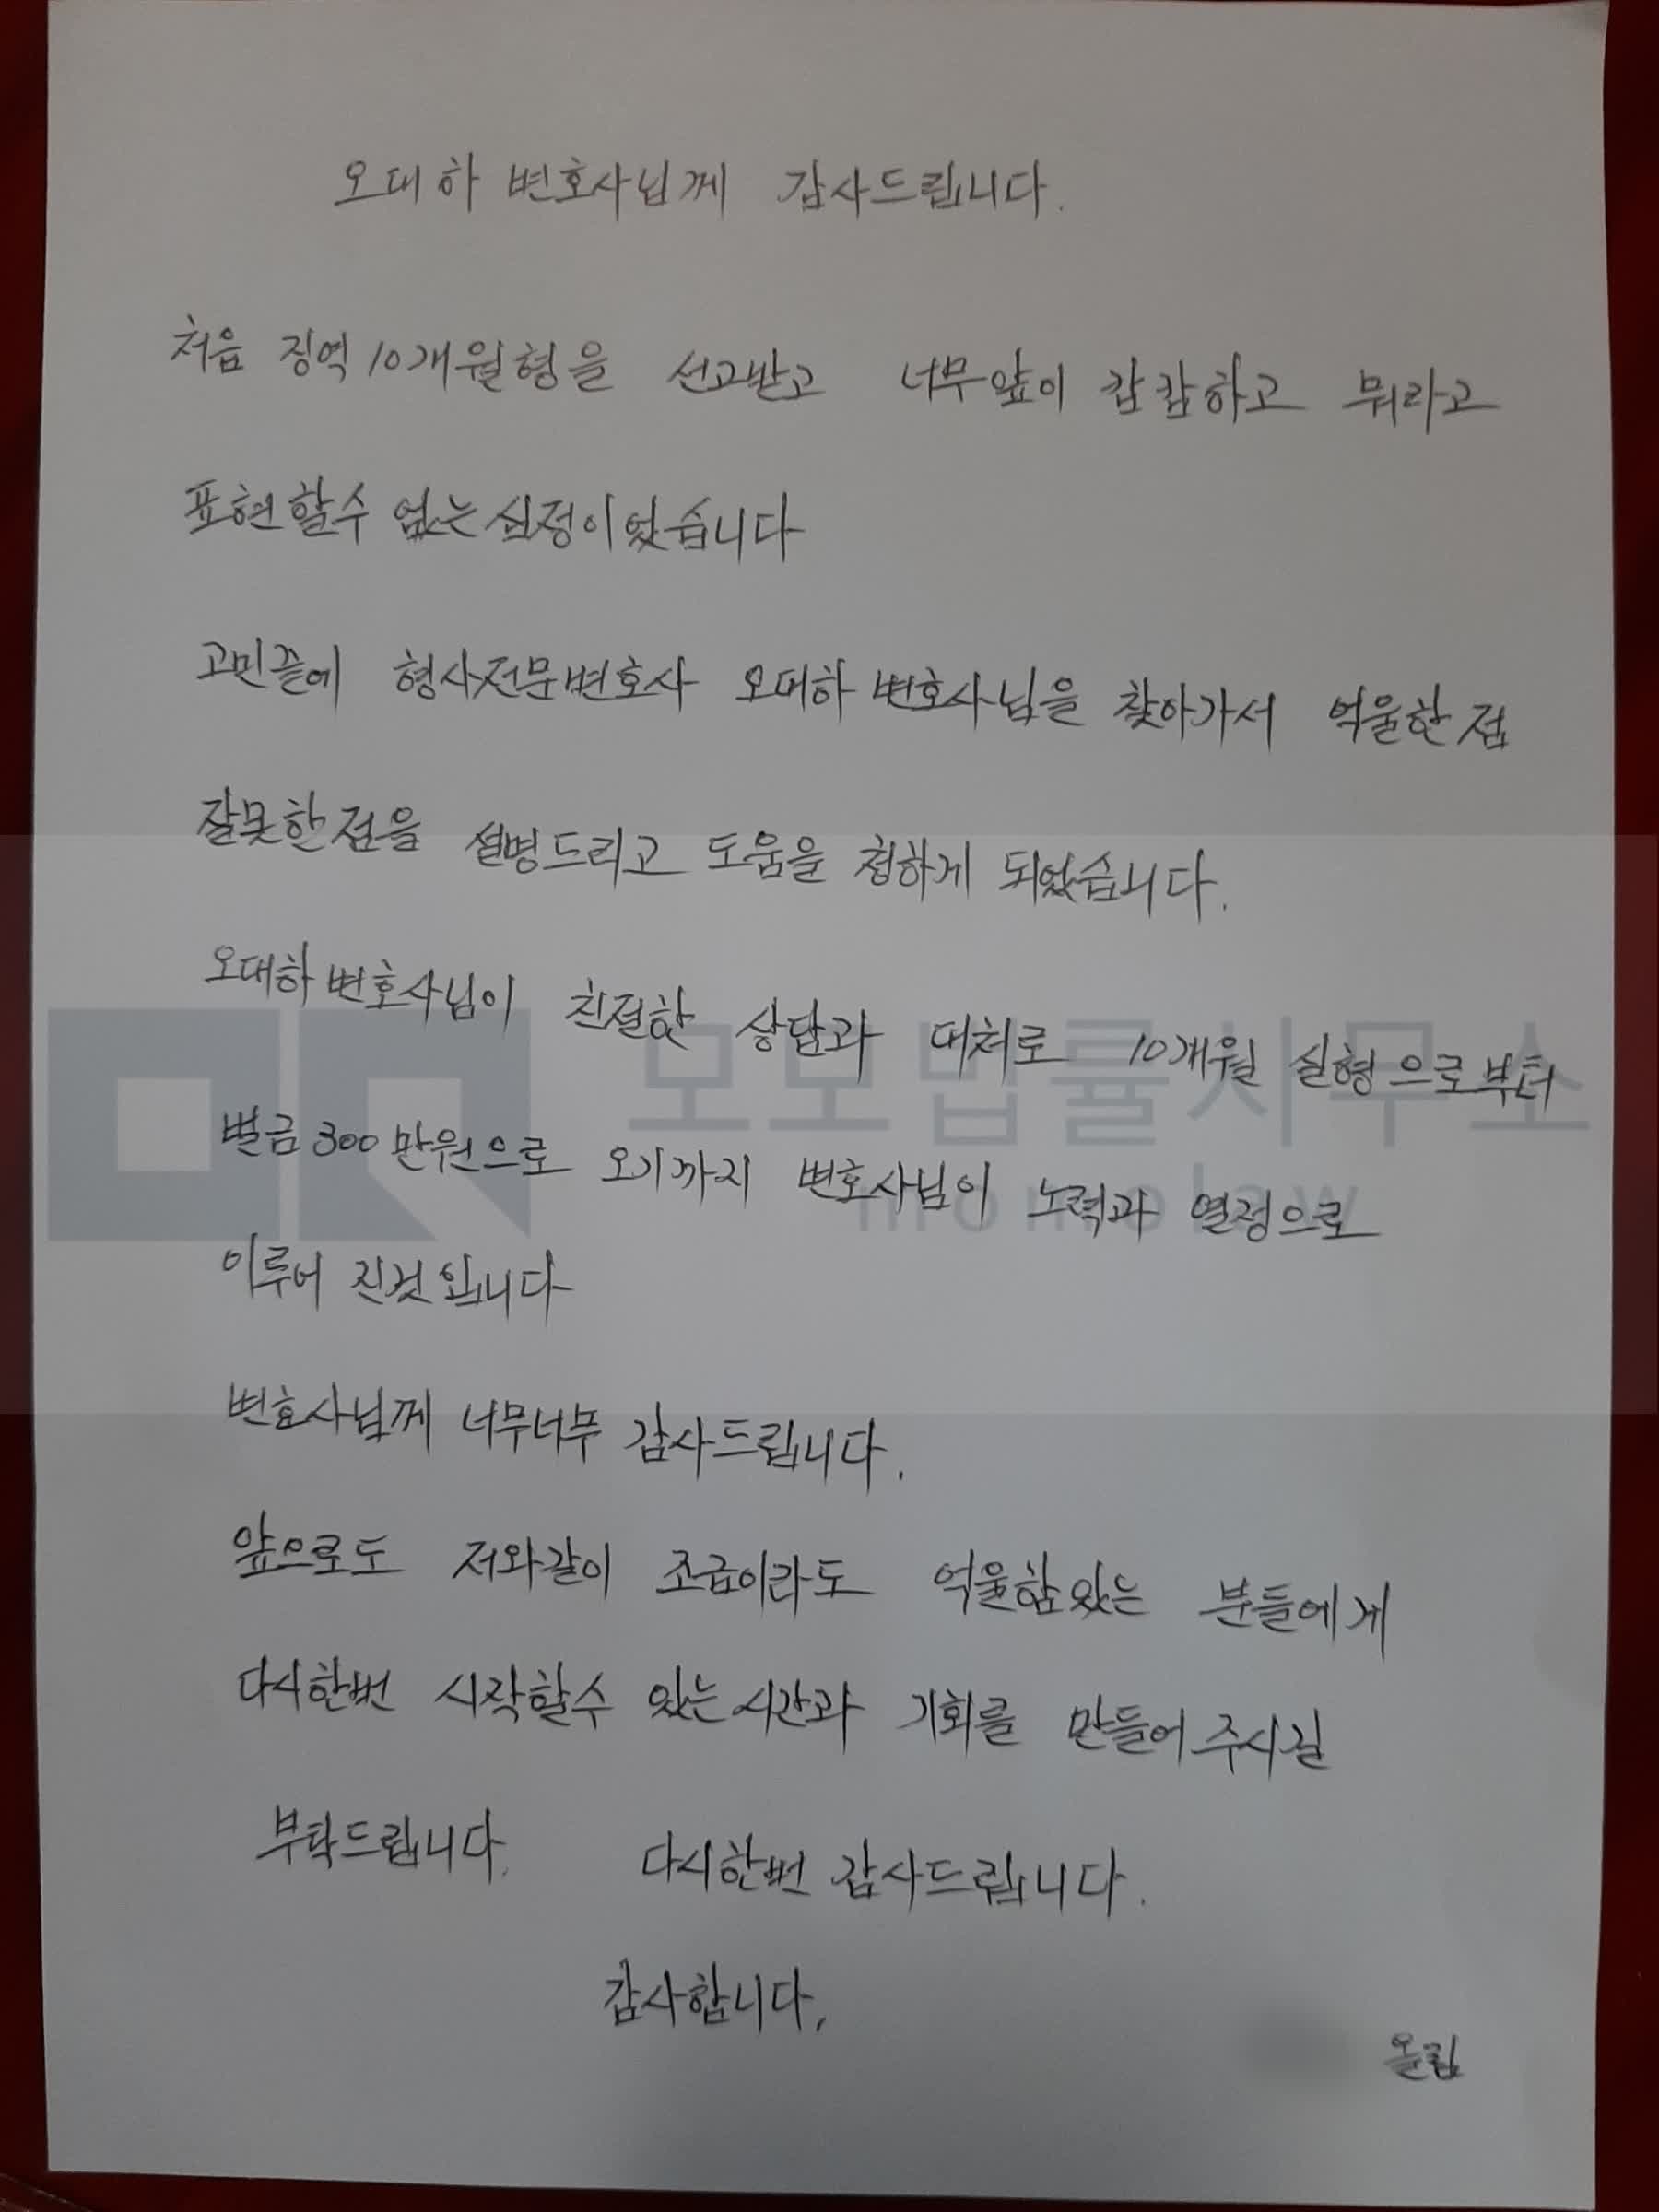 오대하 변호사님께 감사드립니다.
처음 징역 10개월형을 선고받고 너무앞이 캄캄하고 뭐라고
표현할수 없는 심정이었습니다
고민끝에 형사전문변호사 오대하 변호사님을 찾아가서 억울한점
잘못한점을 설명드리고 도움을 청하게 되었습니다.
오대하변호사님이 친절한 상담과 대처로 10개월 실형으로부터
벌금300만원으로 오기까지 변호사님이 노력과 열정으로
이루어 진것입니다
변호사님께 너무너무 감사드립니다.
앞으로도 저와같이 조금이라도 억울함있는 분들에게
다시한번 시작할수 있는시간과 기회를 만들어주시길
부탁드립니다. 다시한번 감사드립니다.
감사합니다,
올림
모모법률사무소
momolaw